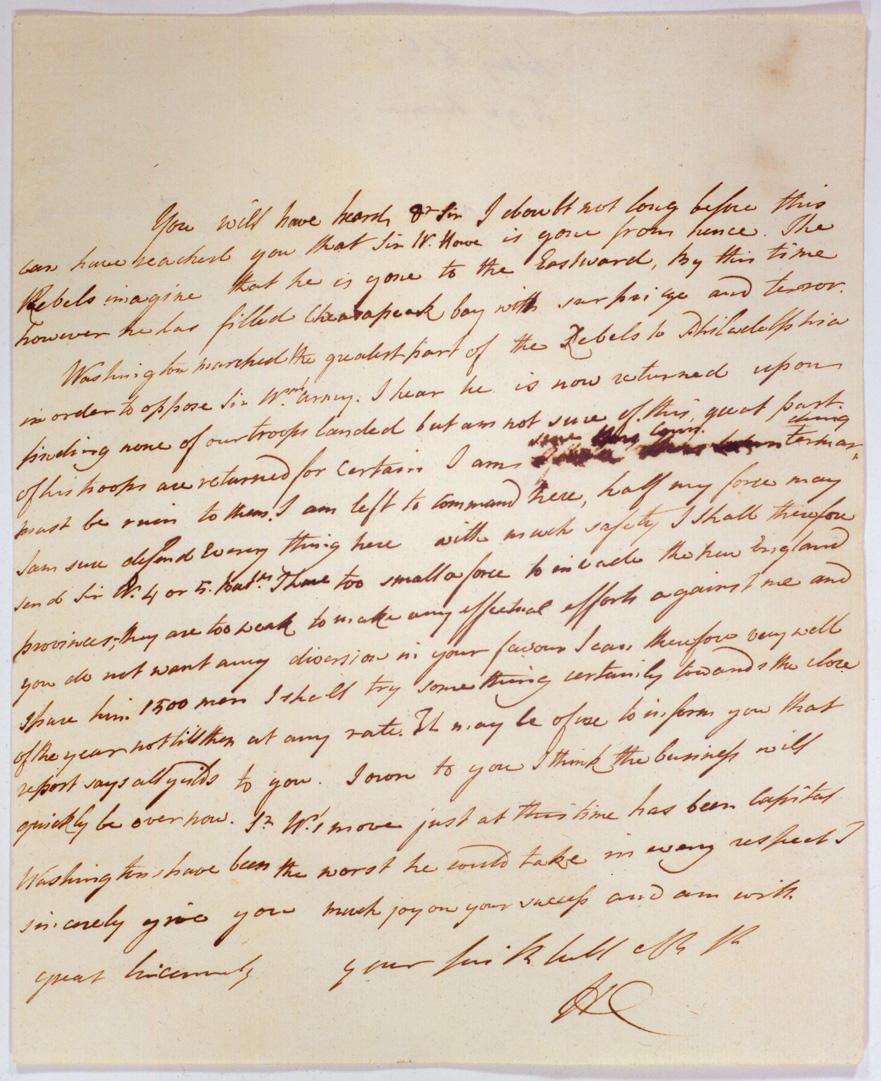 You will have heard, Dr Sir I doubt not long before this
can have reached you that Sir W. Howe is gone from hence. The
Rebels imagine that he is gone to the Eastward, By this time
however he has filled Chesapeak bay with surprize and terror.
Washington marched the greatest part of the Rebels to Philadelphia
in order to oppose Sir Wms. army. I hear he is now returned upon
finding none of our troops landed but am not sure of this, great part
of his troops are returned for certain I am sure this countermarching
must be ruin to them. I am left to command here, half my force may
I am sure defend every thing here with much safety I shall therefore
send Sir W. 4 or 5. Batns I have too small a force to invade the New England
provinces, they are too weak to make any effectual efforts against me and
you do not want any diversion in your favour I can therefore very well
spare him 1500 men I shall try something certainly towards the close
of the year not till then at any rate. It may be of use to inform you that
report says all yeilds to you. I own to you I think the business will
quickly be over now. Sr. W's move just at this time has been Capital
Washingtons have been the worst he could take in every respect I
sincerely give you much joy on your success and am with
great Sincerity your
HC